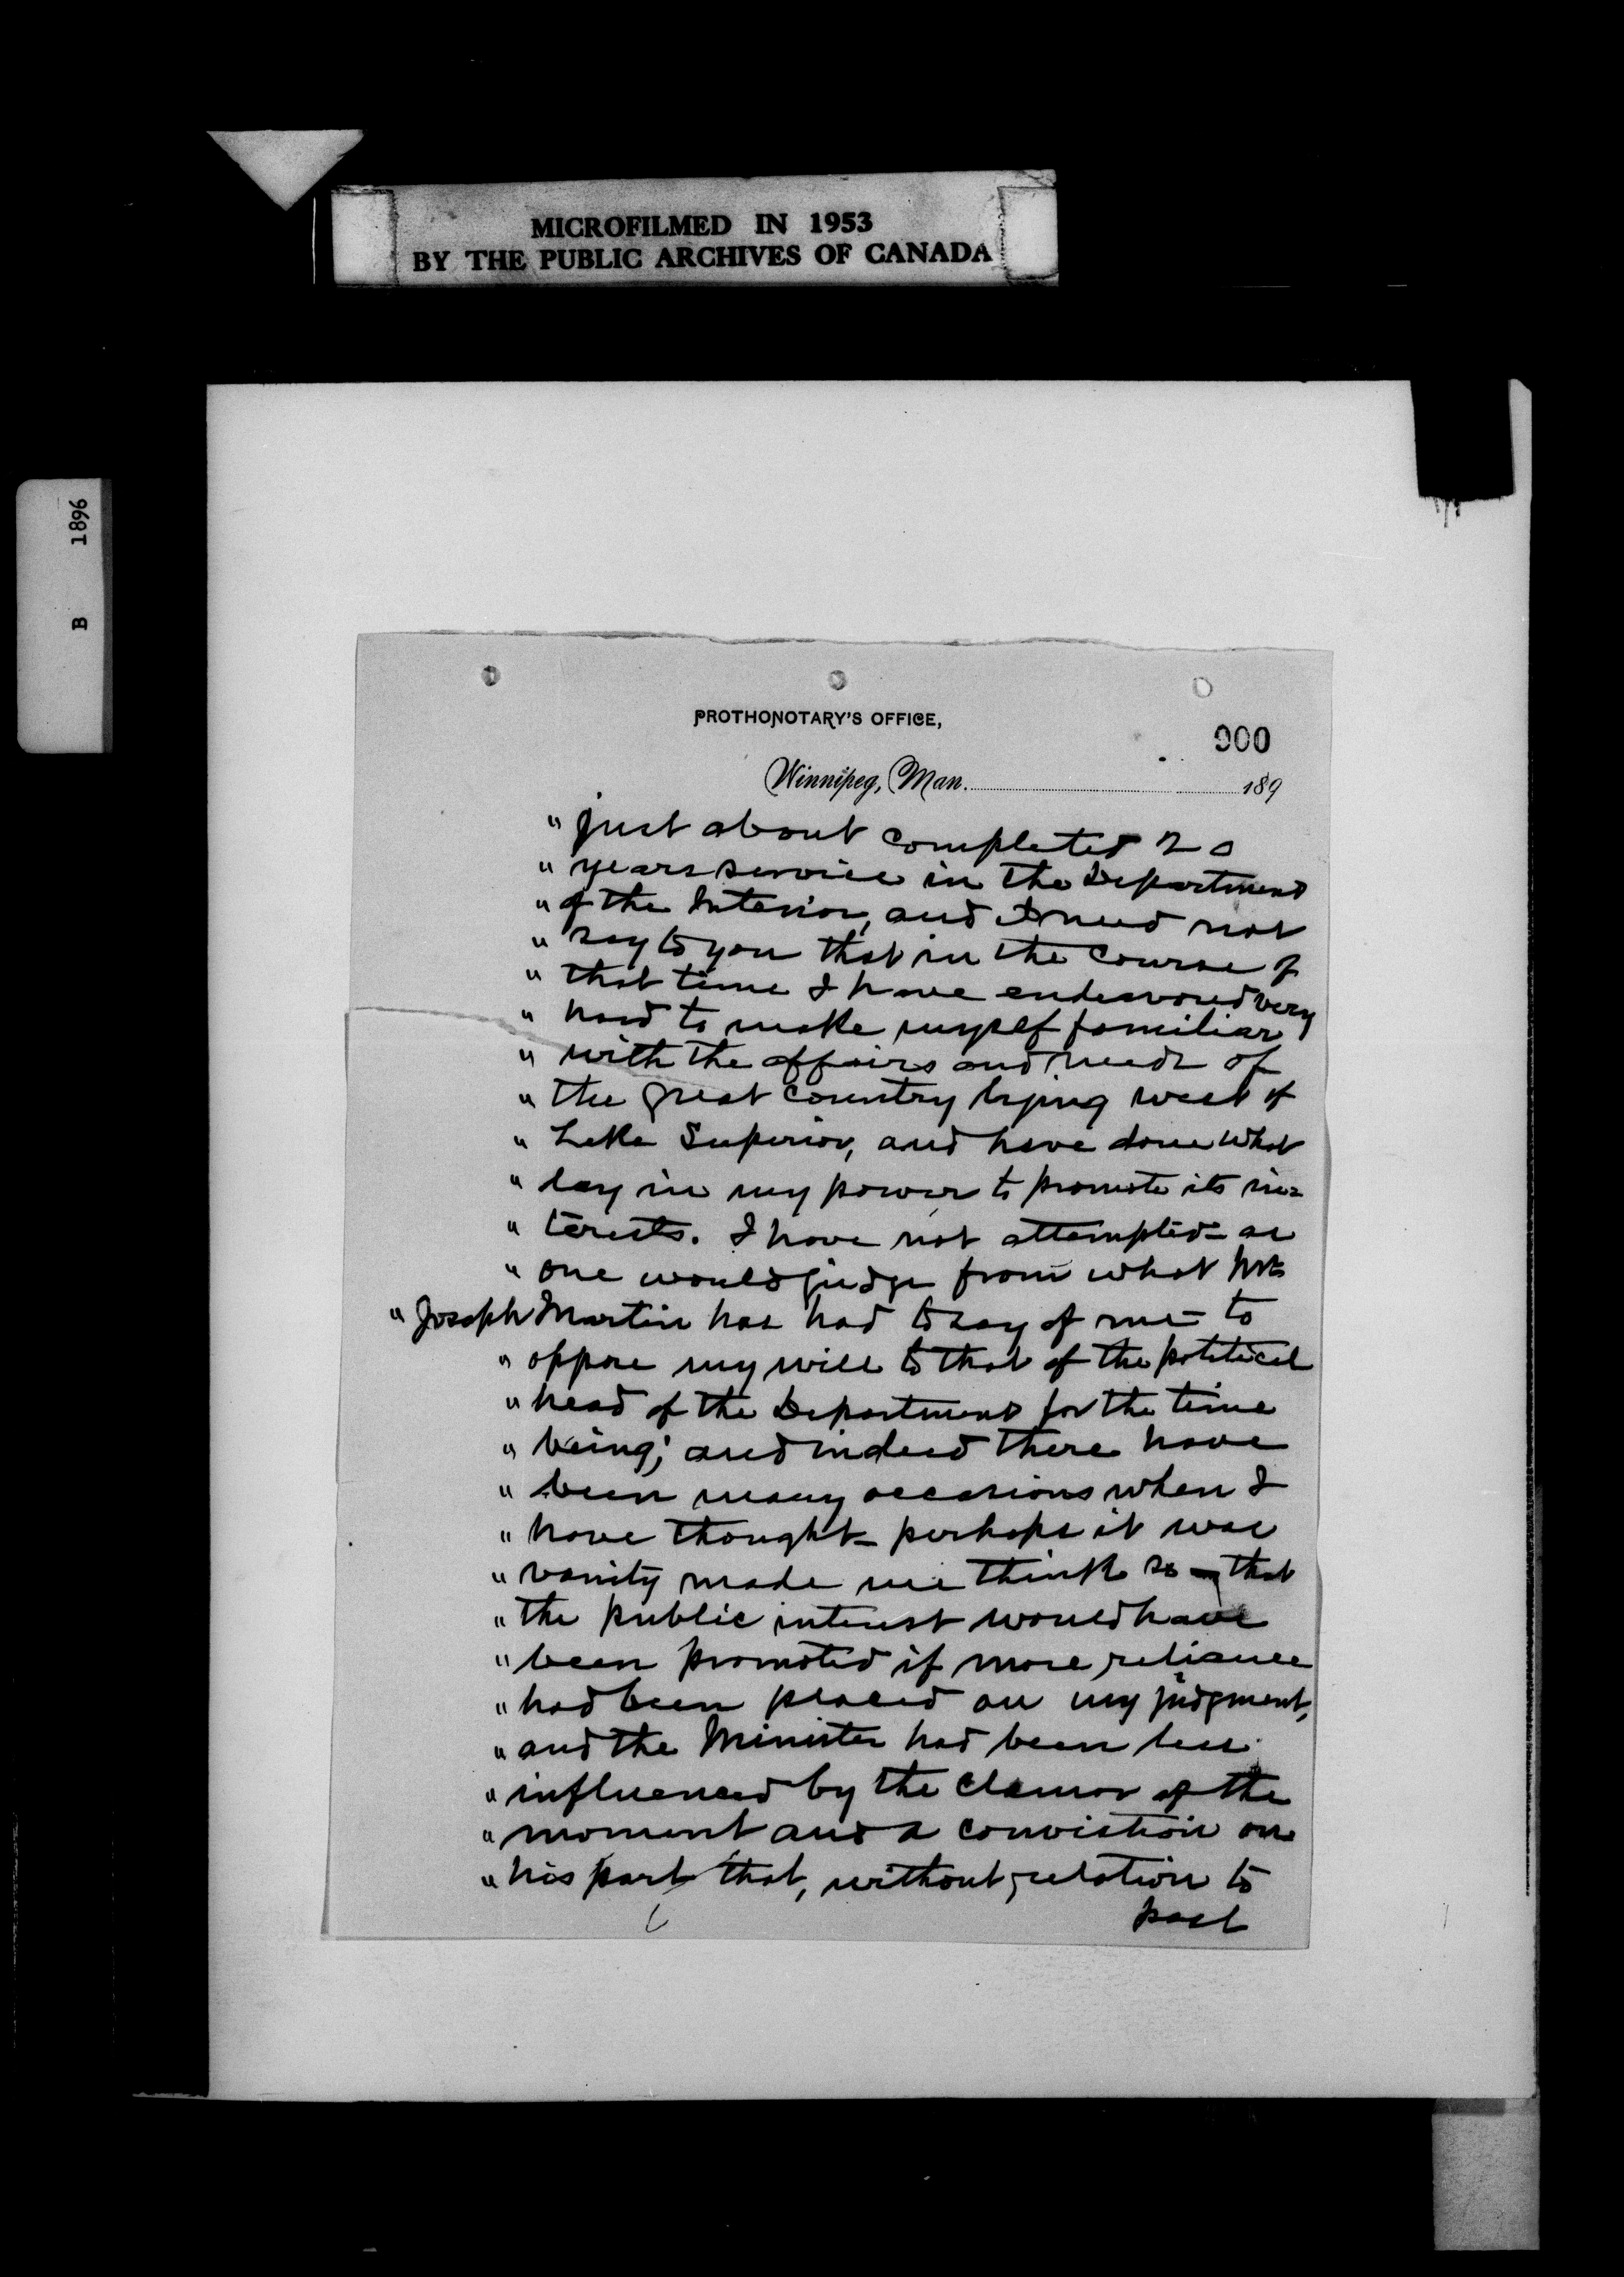 MICROFILMED IN 1953
BY THE PUBLIC ARCHIVES OF CANADA
B 1896
PROTHONOTARY'S OFFICE,
900
Winnipeg, Man. 189
" just about completed 20
" years service in the Department
" of the Interior, and I need not
" say to you that in the course of
" that time I have endeavored very
" hard to make myself familiar
" with the affairs and needs of
" the great country lying west of
" Lake Superior, and have done what
" lay in my power to promote its in=
" terests. I have not attempted - as
" one would judge from what Mr.
" Joseph Martin has had to say of me - to
" oppose my will to that of the political
" head of the Department for the time
" being; and indeed there have
" been many occasions when I
" have thought - perhaps it was
" vanity made me think so - that
" the public interest would have
" been promoted if more reliance
" had been placed on my judgment,
" and the Minister had been less
" influenced by the clamor of the
" moment and a conviction on
" his part that, without relation to
past